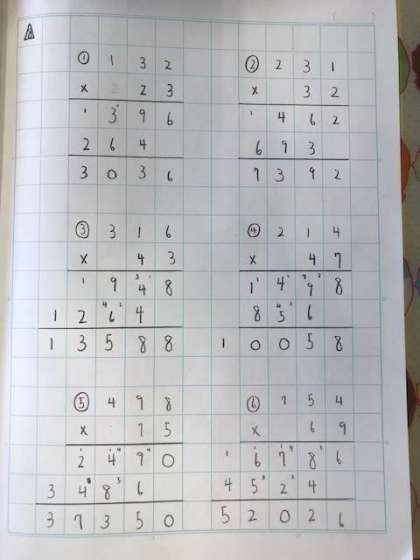 A
① 1 3 2
× 2 3
3 9 6
2 6 4
3 0 3 6
② 2 3 1
× 3 2
4 6 2
6 9 3
7 3 9 2
③ 3 1 6
× 4 3
9 4 8
1 2 6 4
1 3 5 8 8
④ 2 1 4
× 4 7
1 4 9 8
8 5 6
1 0 0 5 8
⑤ 4 9 8
× 7 5
2 4 9 0
3 4 8 6
3 7 3 5 0
⑥ 7 5 4
× 6 9
6 7 8 6
4 5 2 4
5 2 0 2 6